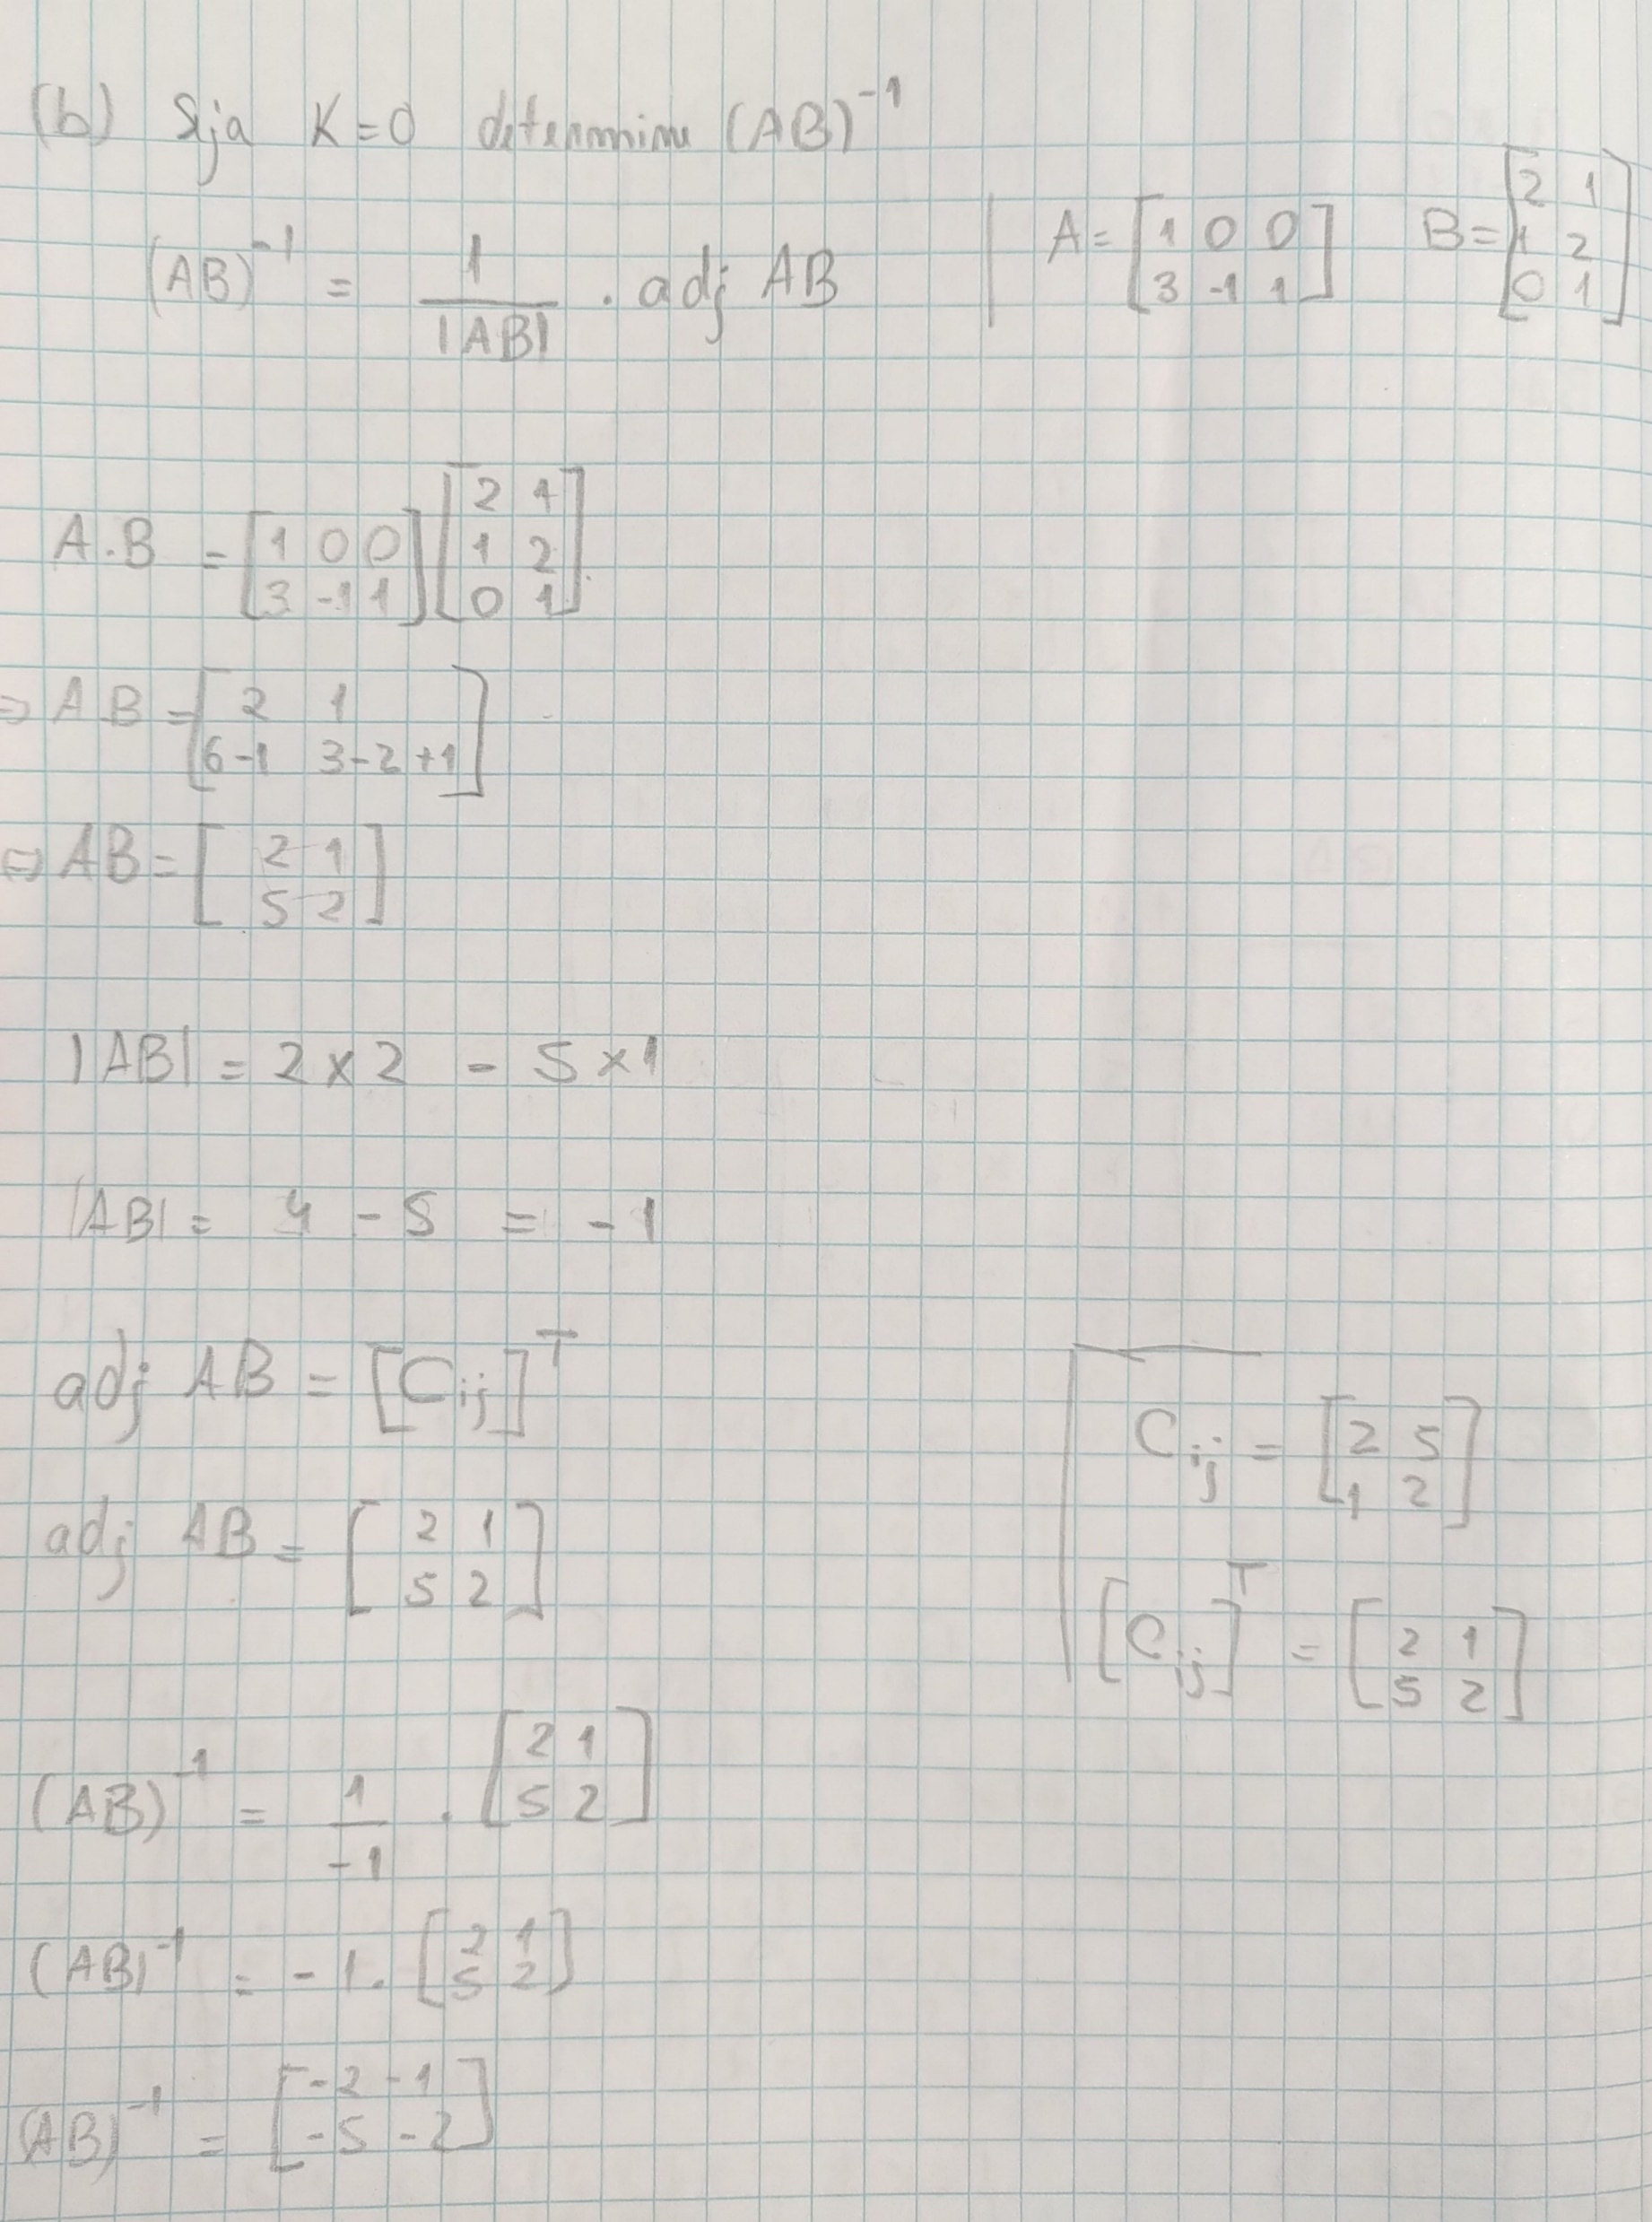 (b) Seja K=0 determine (AB)⁻¹
(AB)⁻¹ = 1/|AB| . adj AB | A = [1 0 0; 3 -1 1] B = [2 1; 1 2; 0 1]
A.B = [1 0 0; 3 -1 1] [2 1; 1 2; 0 1]
⇒ A.B = [2 1; 6-1 3-2+1]
⇔ AB = [2 1; 5 2]
|AB| = 2x2 - 5x1
|AB| = 4 - 5 = -1
adj AB = [Cij]ᵀ
adj AB = [2 1; 5 2]
Cij = [2 5; 1 2]
[Cij]ᵀ = [2 1; 5 2]
(AB)⁻¹ = 1/-1 . [2 1; 5 2]
(AB)⁻¹ = -1. [2 1; 5 2]
(AB)⁻¹ = [-2 -1; -5 -2]